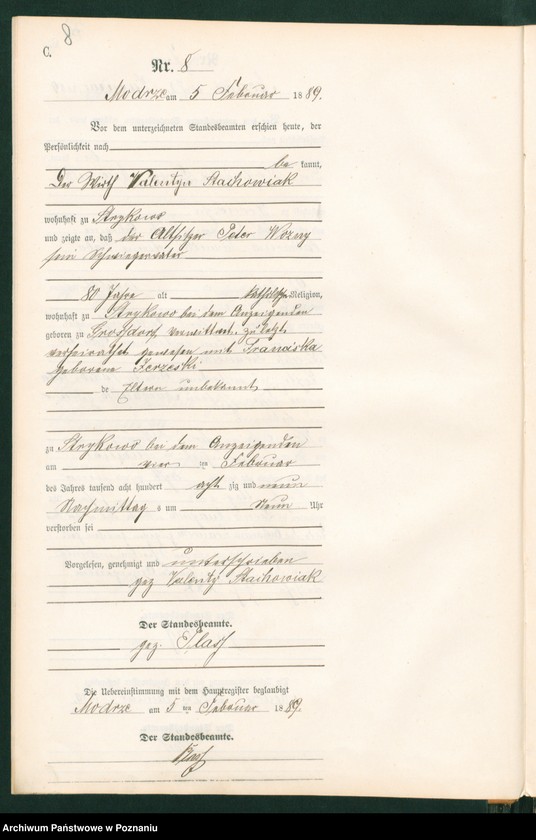 C. 8
Nr. 8
Modrze am 5 Februar 1889.
Vor dem unterzeichneten Standesbeamten erschien heute, der
Persönlichkeit nach
be kannt,
Der Wirth Valentyn Stachowiak
wohnhaft zu Strykowo
und zeigte an, daß der Altsitzer Peter Wozny
sein Schwiegervater
80 Jahre alt katholischer Religion,
wohnhaft zu Strykowo bei dem Anzeigenden
geboren zu Grossdorf, verwittwet, zuletzt
verheirathet gewesen mit Franciska
geborene Jerzeski
de Eltern unbekannt
zu Strykowo bei dem Anzeigenden
am vier ten Februar
des Jahres tausend acht hundert acht zig und neun
Nachmittag s um Neun Uhr
verstorben sei
Vorgelesen, genehmigt und unterschrieben
gez Valenty Stachowiak
Der Standesbeamte.
gez.
Die Uebereinstimmung mit dem Hauptregister beglaubigt
Modrze am 5 ten Februar 1889.
Der Standesbeamte.
Archiwum Państwowe w Poznaniu